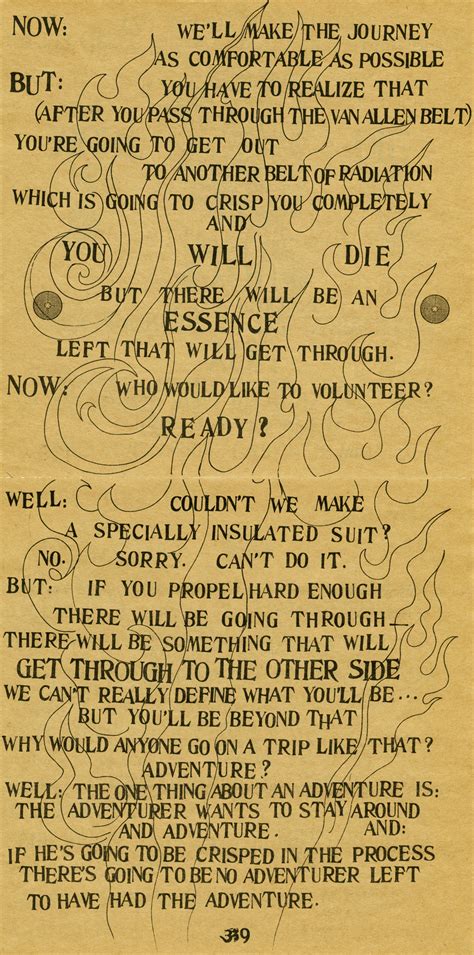 NOW: WE'LL MAKE THE JOURNEY
AS COMFORTABLE AS POSSIBLE
BUT: YOU HAVE TO REALIZE THAT
(AFTER YOU PASS THROUGH THE VAN ALLEN BELT)
YOU'RE GOING TO GET OUT
TO ANOTHER BELT OF RADIATION
WHICH IS GOING TO CRISP YOU COMPLETELY
AND
YOU WILL DIE
BUT THERE WILL BE AN
ESSENCE
LEFT THAT WILL GET THROUGH.
NOW: WHO WOULD LIKE TO VOLUNTEER?
READY?
WELL: COULDN'T WE MAKE
A SPECIALLY INSULATED SUIT?
NO. SORRY. CAN'T DO IT.
BUT: IF YOU PROPEL HARD ENOUGH
THERE WILL BE GOING THROUGH—
THERE WILL BE SOMETHING THAT WILL
GET THROUGH TO THE OTHER SIDE
WE CAN'T REALLY DEFINE WHAT YOU'LL BE...
BUT YOU'LL BE BEYOND THAT
WHY WOULD ANYONE GO ON A TRIP LIKE THAT?
ADVENTURE?
WELL: THE ONE THING ABOUT AN ADVENTURE IS:
THE ADVENTURER WANTS TO STAY AROUND
AND ADVENTURE. AND:
IF HE'S GOING TO BE CRISPED IN THE PROCESS
THERE'S GOING TO BE NO ADVENTURER LEFT
TO HAVE HAD THE ADVENTURE.
39